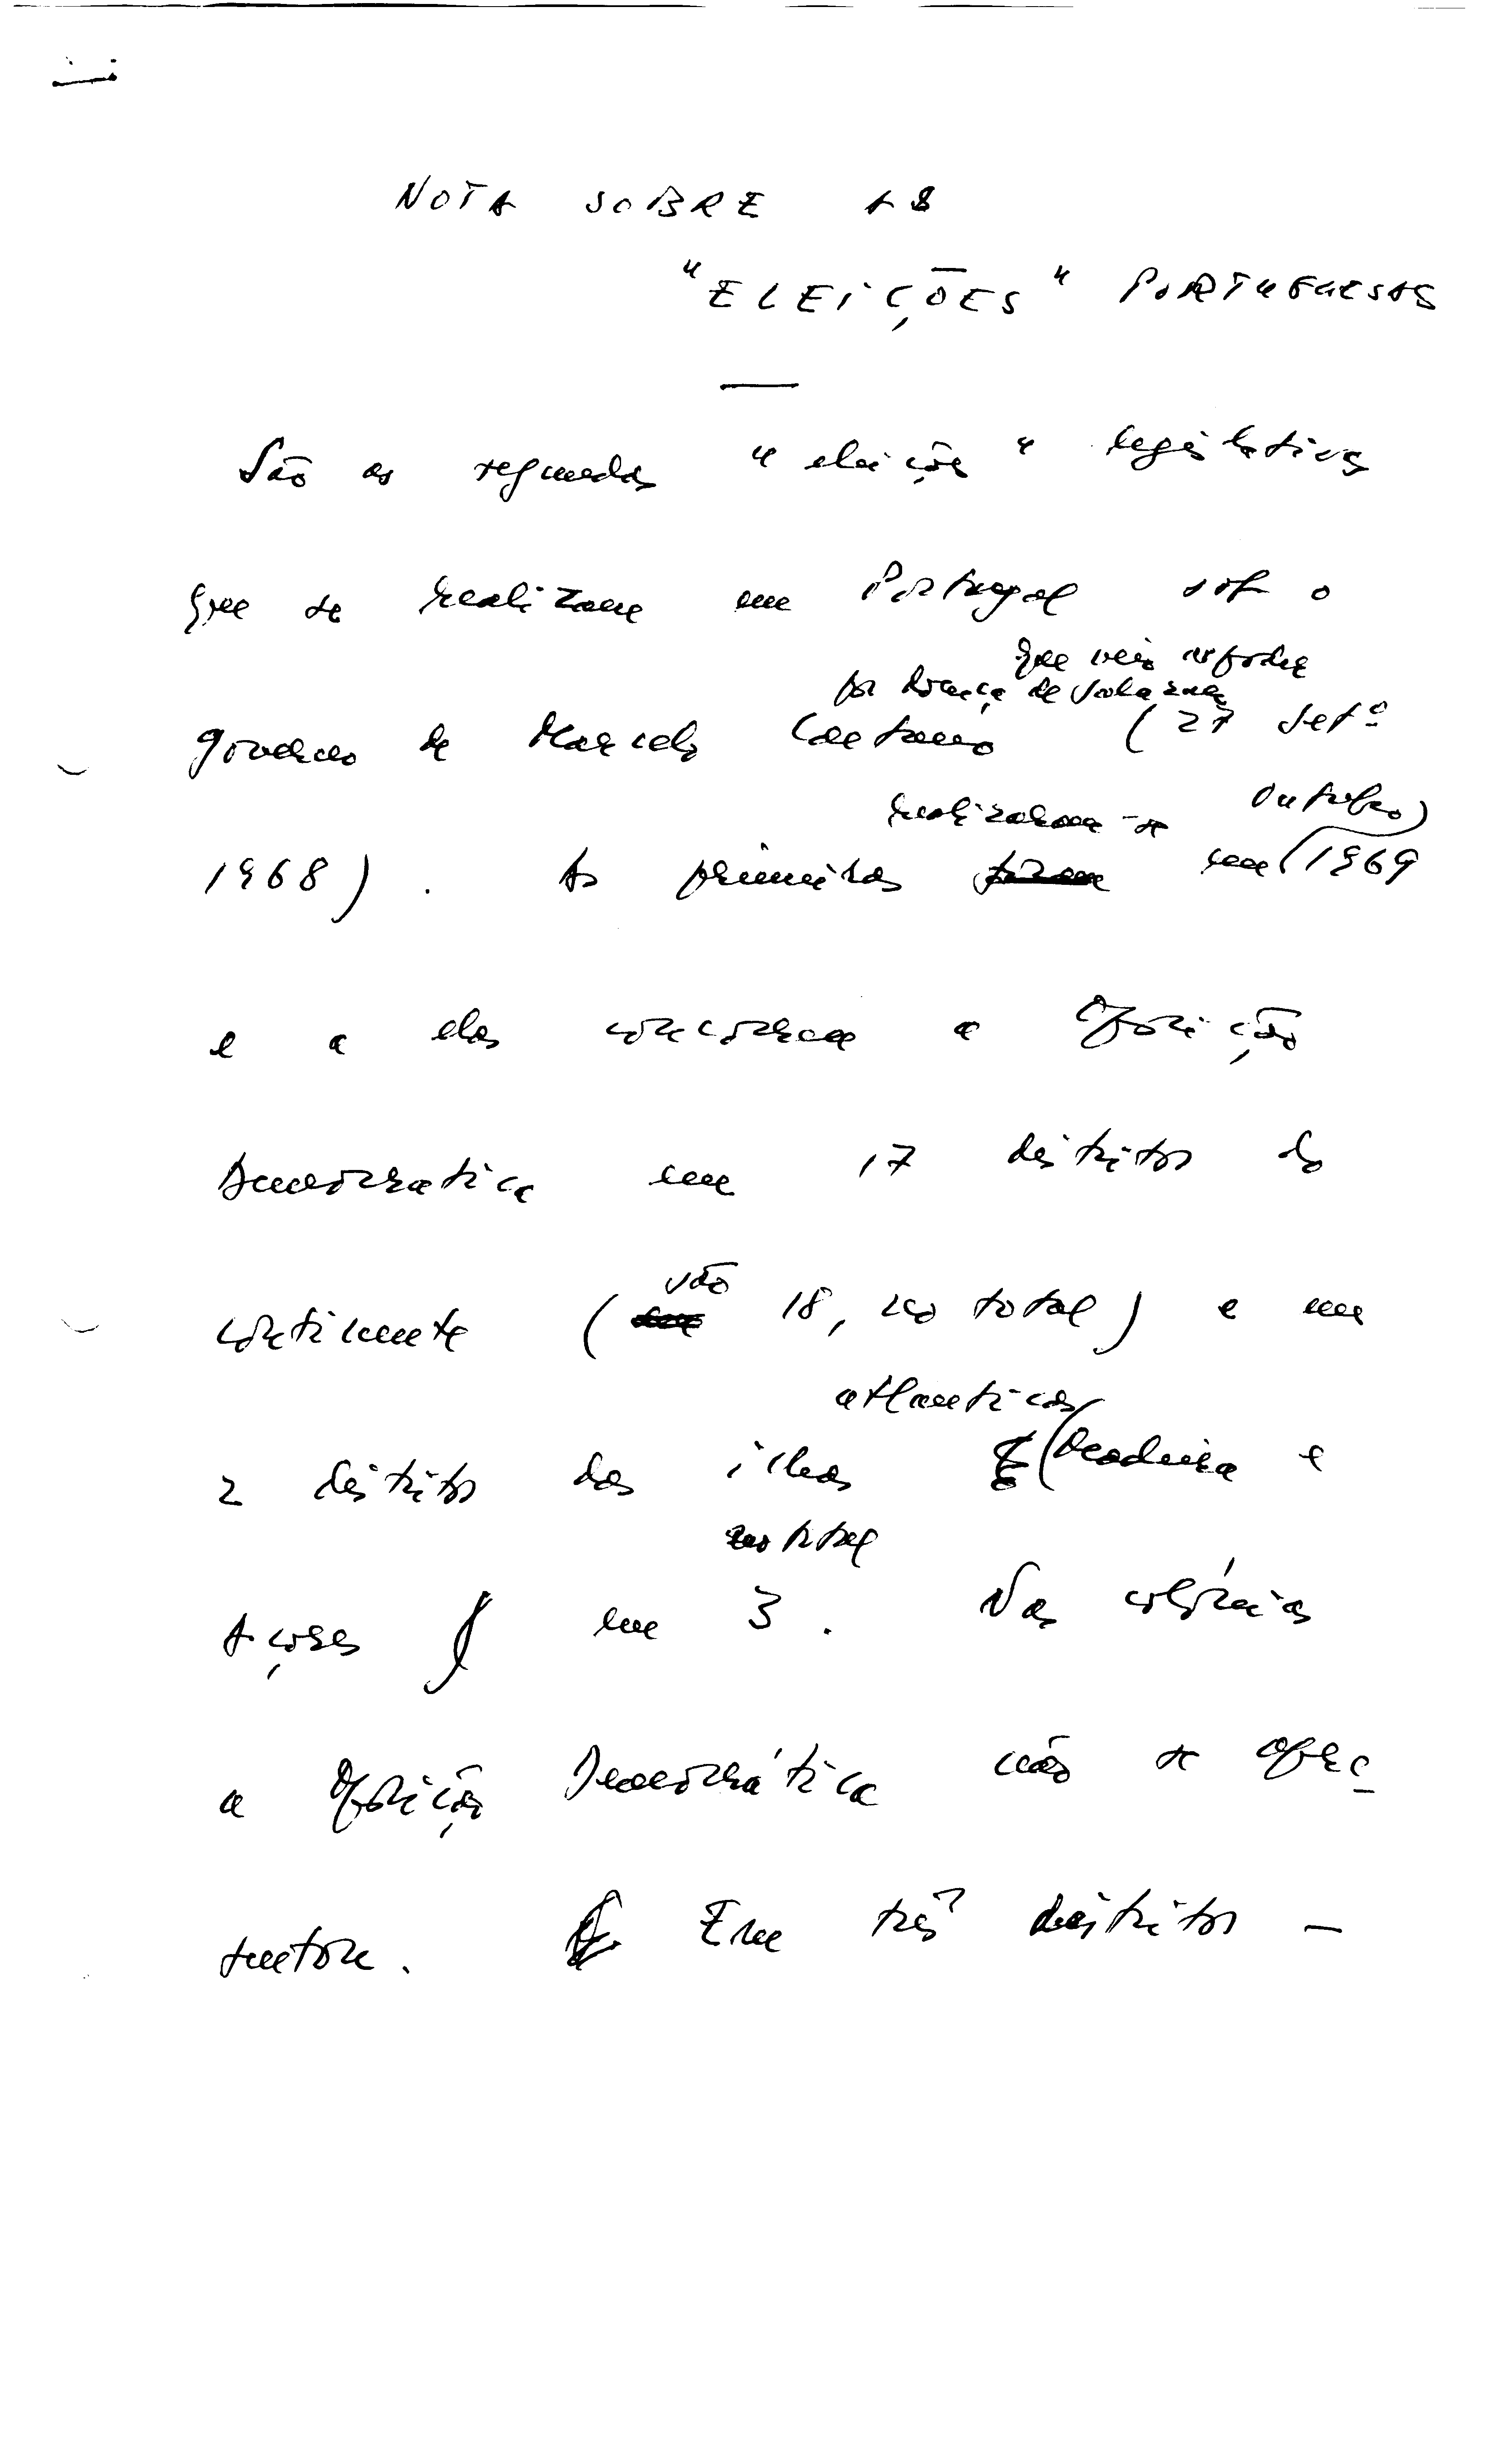 NOTA SOBRE AS
"ELEIÇÕES" PORTUGUESAS
São as segundas "eleições" legislativas
que se realizam em Portugal sob o
que veio ao poder
por doença de Salazar
governo de Marcelo Caetano (27 Setº
realizaram-se Outubro)
1968). As primeiras foram em (1969
e a elas concorreu a Oposição
Democratica em 17 distritos do
vão
continente ( 18, no total) e em
atlanticas
2 distritos das ilhas (Madeira e
no total
Açores) em 3. Nas colónias
a Oposição Democrática não se apre
sentou. Em três distritos –